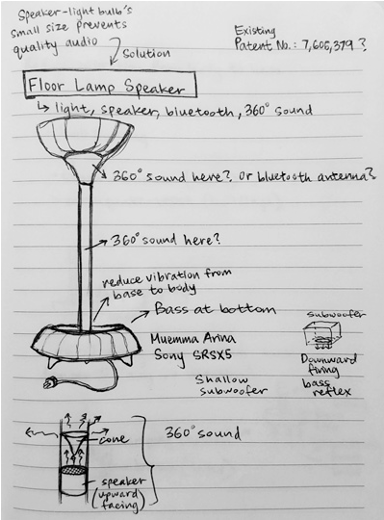 Speaker-light bulb's
small size prevents
quality audio
Solution
Existing
Patent No.: 7,606,379 ?
Floor Lamp Speaker
↳ light, speaker, bluetooth, 360° sound
360° sound here? or bluetooth antenna?
360° sound here?
reduce vibration from
base to body
Bass at bottom
Muemma Arina
Sony SRSX5
Shallow
subwoofer
subwoofer
Downward
firing
bass
reflex
cone
360° sound
speaker
(upward
facing)